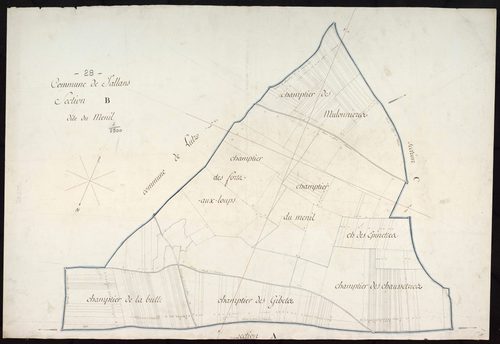 - 28 -
Commune de Fallans
Section B
dite du Menil
1/2500
N
commune de
Section C
champtier de
champtier
des fosses
aux-loups
champtier
du menil
ch des Epinettes
champtier de la butte
champtier des Gibets
champtier des
section A